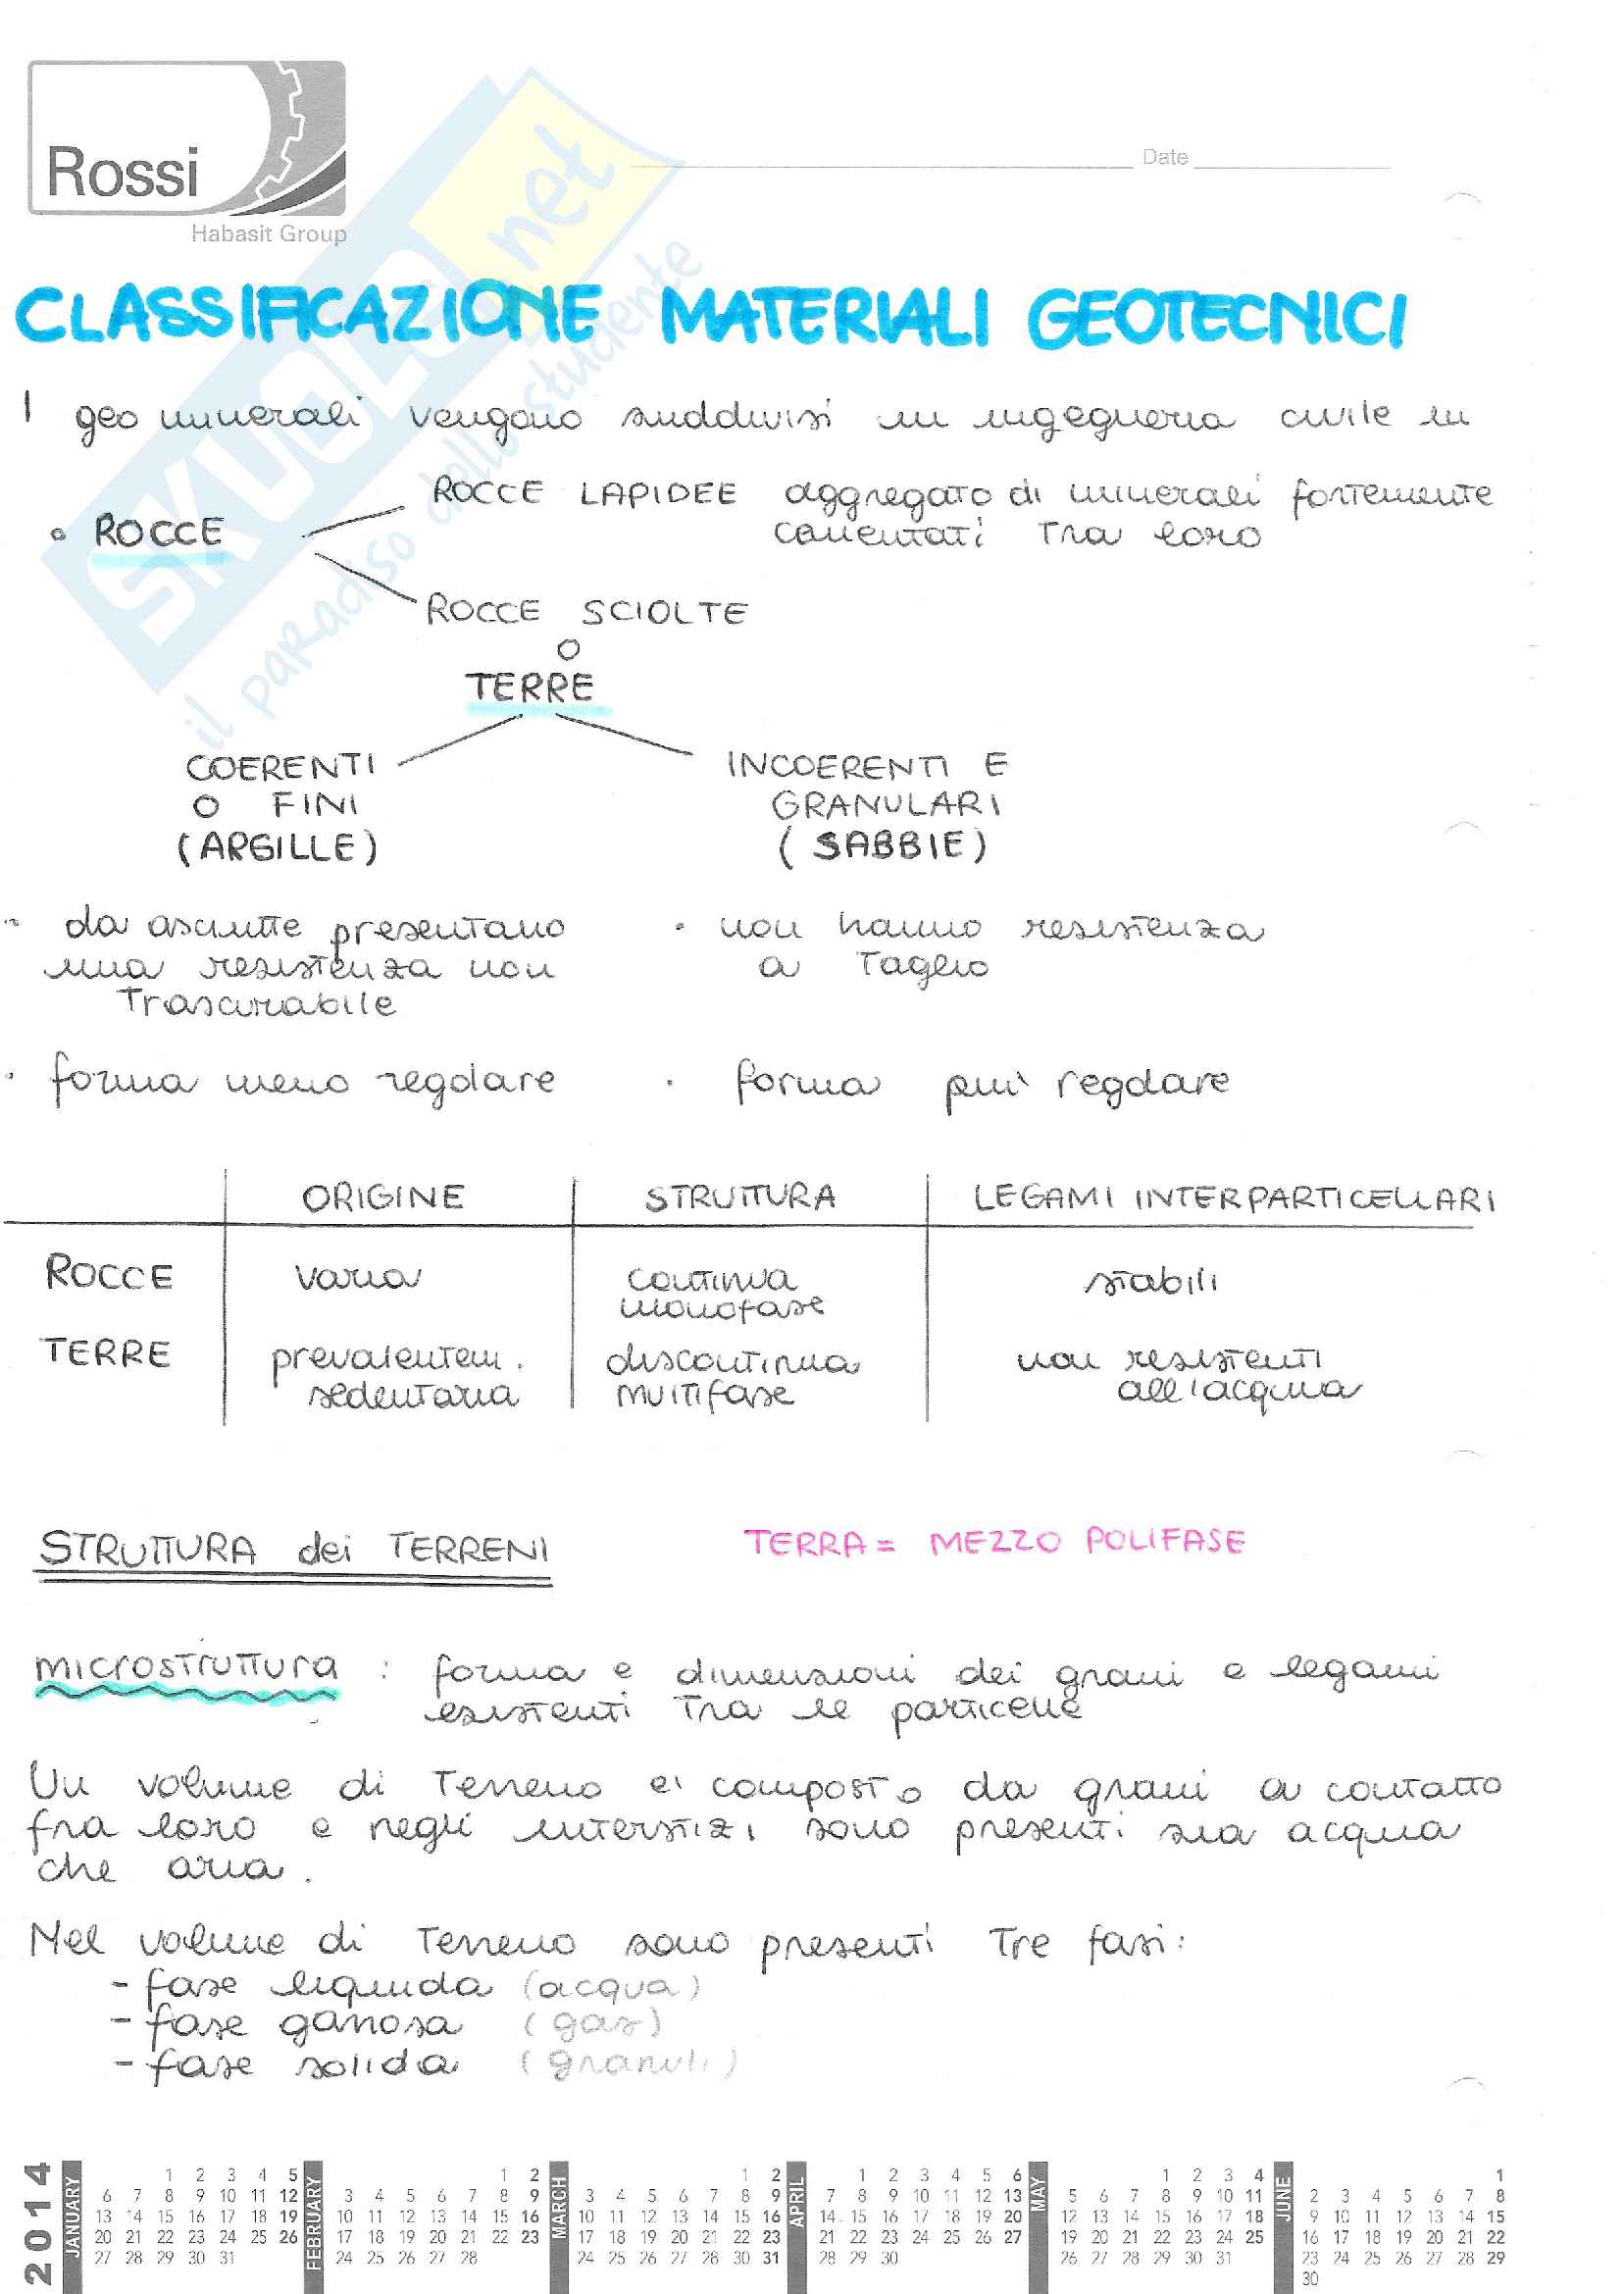 Rossi
Habasit Group
Date
SKUOLA.net
il paradiso dello studente
CLASSIFICAZIONE MATERIALI GEOTECNICI
I geo minerali vengono suddivisi in ingegneria civile in
ROCCE LAPIDEE aggregato di minerali fortemente
• ROCCE
cementati tra loro
ROCCE SCIOLTE
O
TERRE
COERENTI
O FINI
(ARGILLE)
INCOERENTI E
GRANULARI
(SABBIE)
• da asciutte presentano
una resistenza non
trascurabile
• non hanno resistenza
a taglio
• forma meno regolare
• forma più regolare
ORIGINE STRUTTURA LEGAMI INTERPARTICELLARI
ROCCE varia continua stabili
monofase
TERRE prevalentem. discontinua non resistenti
sedentaria multifase all'acqua
STRUTTURA dei TERRENI
TERRA = MEZZO POLIFASE
microstruttura : forma e dimensioni dei grani e legami
esistenti tra le particelle
Un volume di terreno e' composto da grani a contatto
fra loro e negli interstizi sono presenti sia acqua
che aria.
Nel volume di terreno sono presenti tre fasi:
- fase liquida (acqua)
- fase gassosa (gas)
- fase solida (granuli)
2014
JANUARY
1 2 3 4 5
6 7 8 9 10 11 12
13 14 15 16 17 18 19
20 21 22 23 24 25 26
27 28 29 30 31
FEBRUARY
1 2
3 4 5 6 7 8 9
10 11 12 13 14 15 16
17 18 19 20 21 22 23
24 25 26 27 28
MARCH
1 2
3 4 5 6 7 8 9
10 11 12 13 14 15 16
17 18 19 20 21 22 23
24 25 26 27 28 29 30 31
APRIL
1 2 3 4 5 6
7 8 9 10 11 12 13
14 15 16 17 18 19 20
21 22 23 24 25 26 27
28 29 30
MAY
1 2 3 4
5 6 7 8 9 10 11
12 13 14 15 16 17 18
19 20 21 22 23 24 25
26 27 28 29 30 31
JUNE
1
2 3 4 5 6 7 8
9 10 11 12 13 14 15
16 17 18 19 20 21 22
23 24 25 26 27 28 29
30